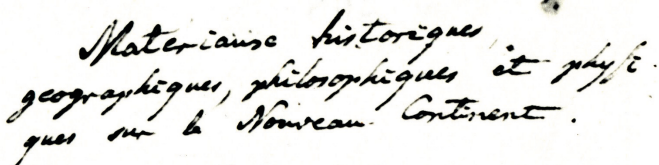 Materiause historiques,
geographiques, philosophiques et physi-
ques sur le Nouveau Continent.